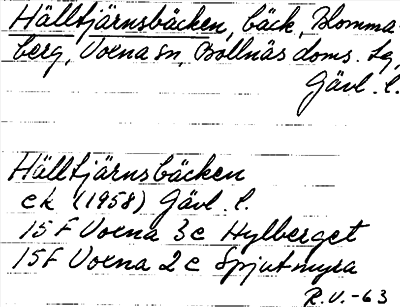 Hälltjärnsbäcken, bäck, Blomma-
berg, Voxna sn, Bollnäs doms. sg,
Gävl. l.
Hälltjärnsbäcken
ek (1958) Gävl. l.
15 F Voxna 3 c Hylberget
15 F Voxna 2 c Spjutmyra
R.V.-63